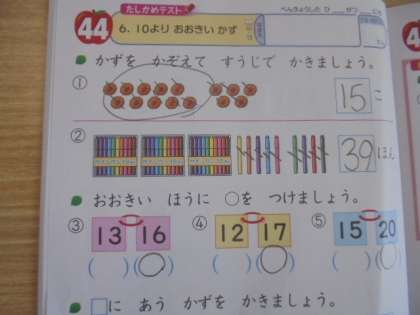 たしかめテスト
べんきょうした ひ
44
6. 10より おおきい かず
かずを かぞえて すうじで かきましょう。
①
15 こ
②
39 ほん
おおきい ほうに ○を つけましょう。
③ 13 16 ④ 12 17 ⑤ 15 20
( ) (○) ( ) (○) ( ) (○)
□に あう かずを かきましょう。